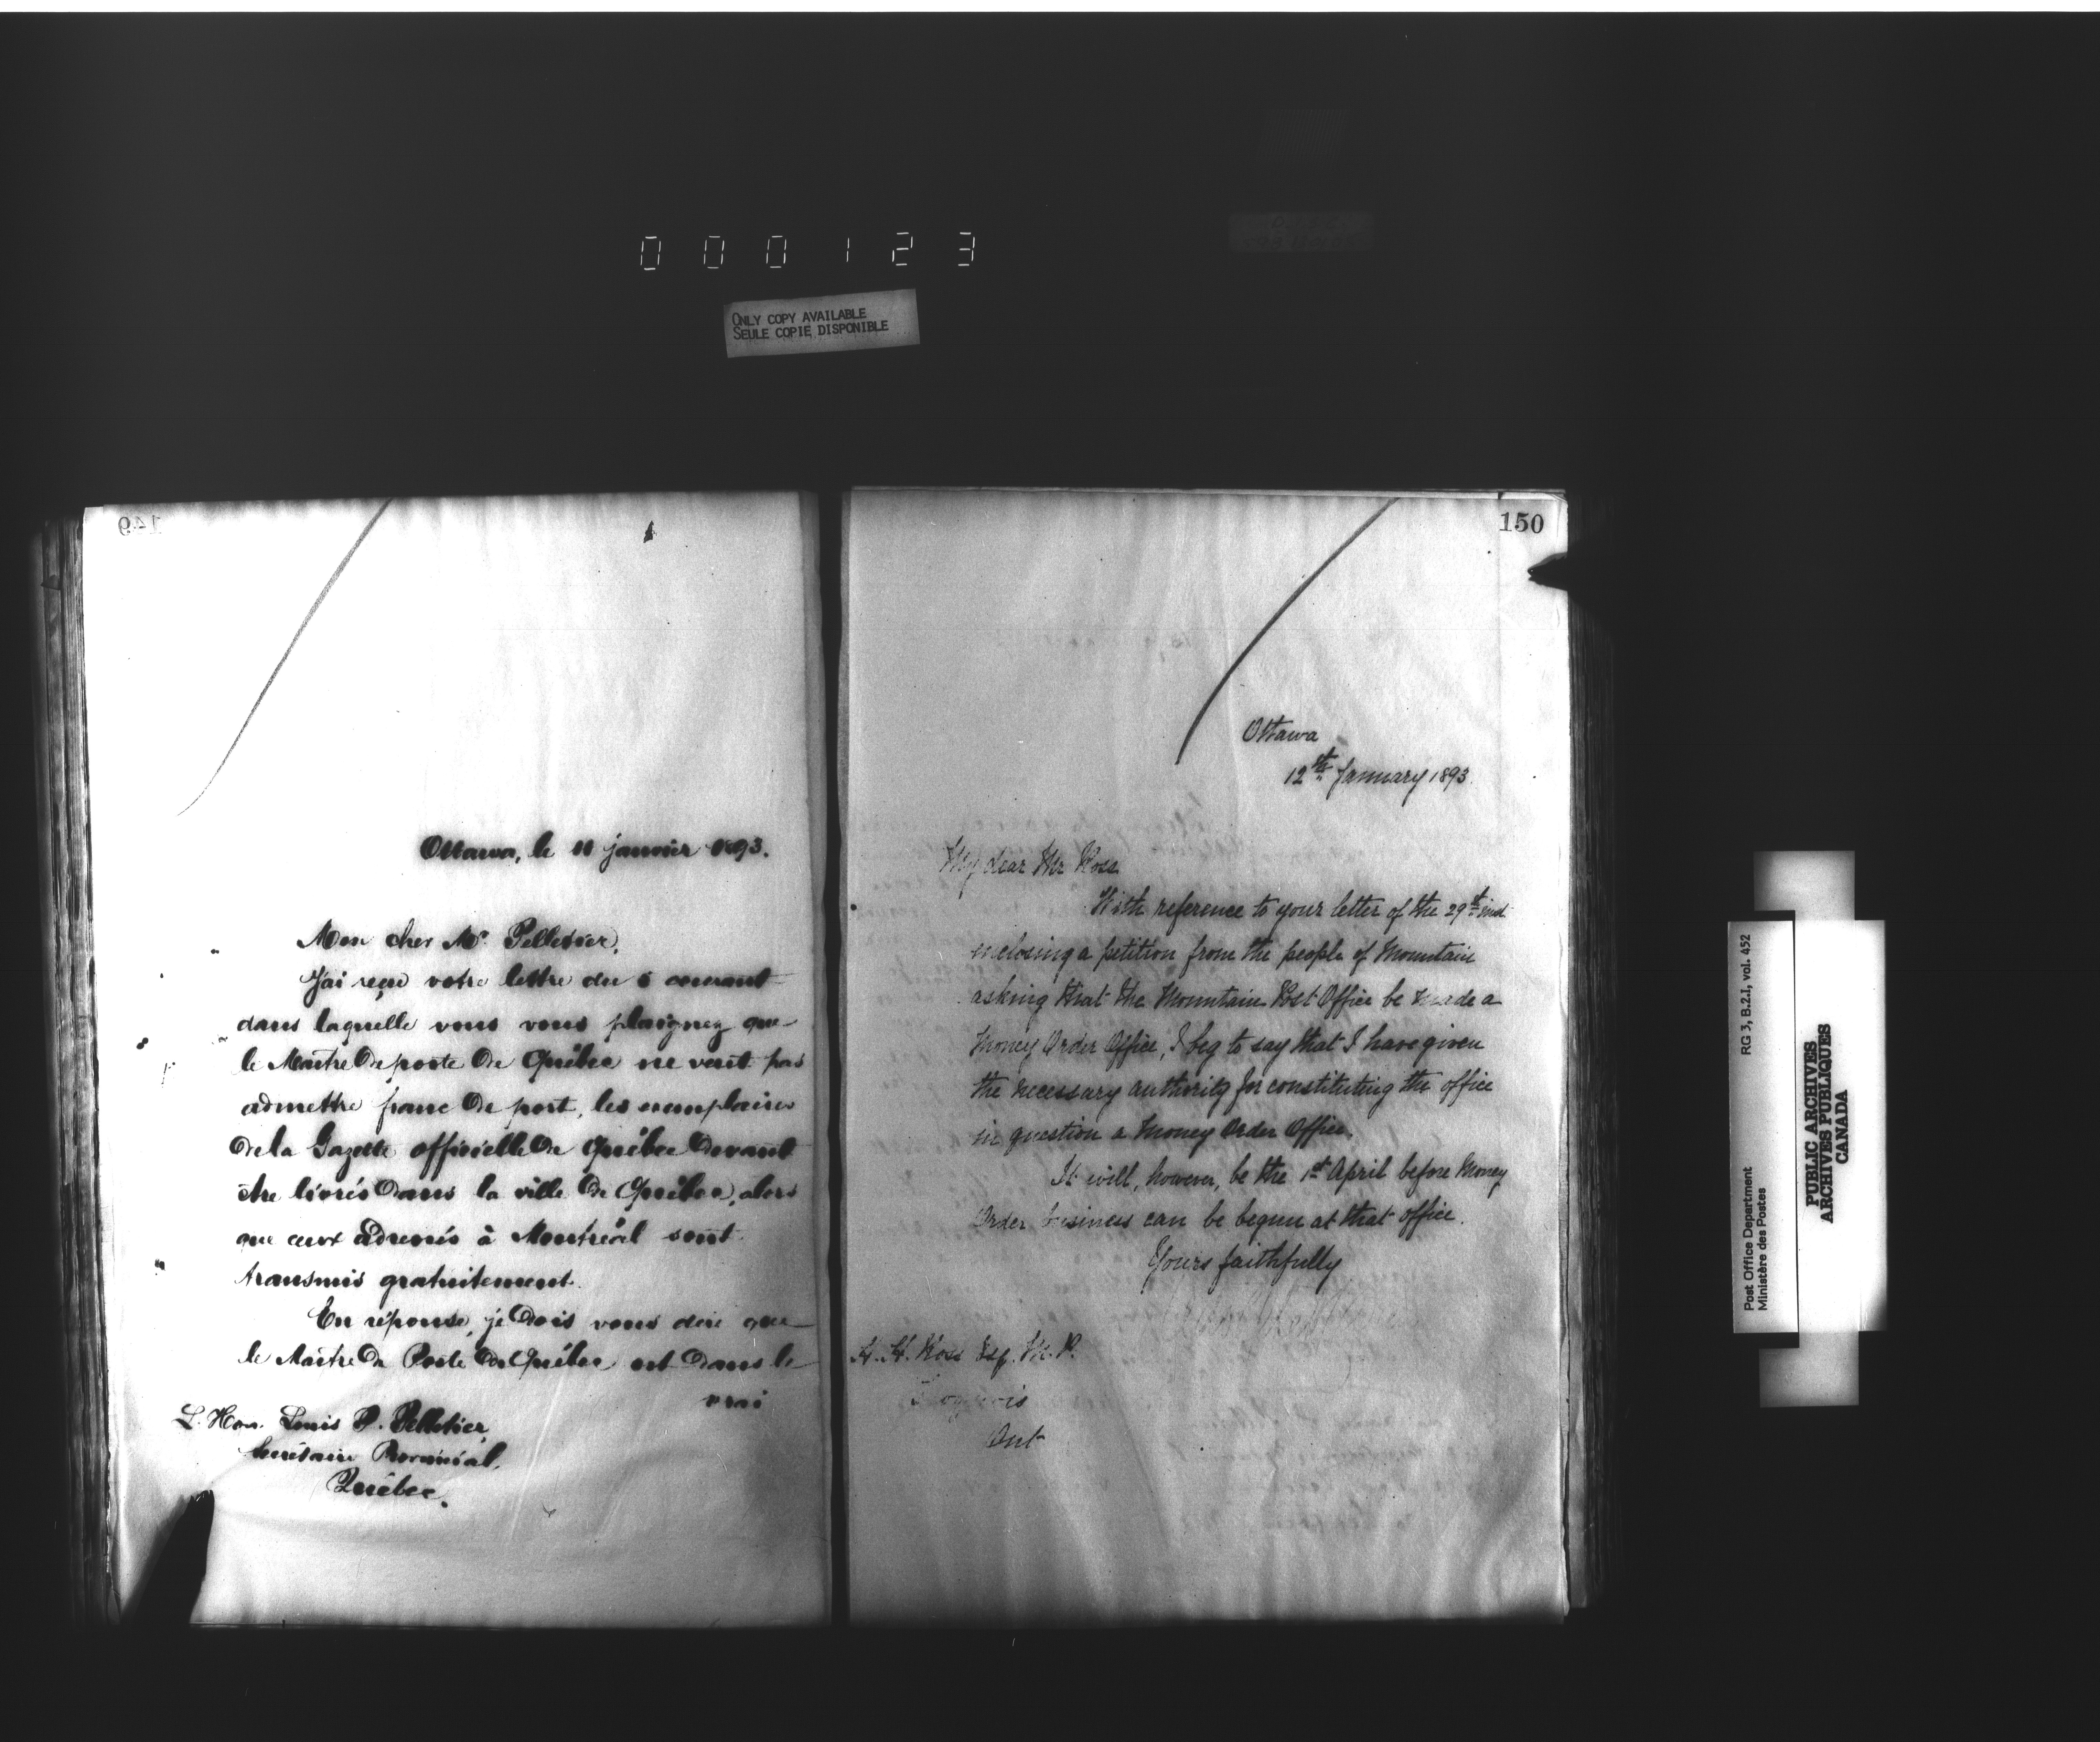 000123
ONLY COPY AVAILABLE
SEULE COPIE DISPONIBLE
149
Ottawa, le 11 janvier 1893.
Mon cher Mr. Pelletier,
J'ai reçu votre lettre du 6 courant
dans laquelle vous vous plaignez que
le Maître de poste de Québec ne veut pas
admettre franc de port, les exemplaires
de la Gazette officielle de Québec devant
être livrés dans la ville de Québec, alors
que ceux adressés à Montréal sont
transmis gratuitement.
En réponse, je dois vous dire que
le Maître de Poste de Québec est dans le
vrai
L'Hon. Louis P. Pelletier,
Secrétaire Provincial,
Québec.
150
Ottawa
12th January 1893.
My dear Mr Ross
With reference to your letter of the 29th inst
enclosing a petition from the people of Mountain
asking that the Mountain Post Office be made a
Money Order Office, I beg to say that I have given
the necessary authority for constituting the office
in question a Money Order Office.
It will, however, be the 1st April before Money
Order business can be begun at that office.
Yours faithfully
H. H. Ross Esq. M.P.
Iroquois
Ont
RG 3, B.2.I, vol. 452
Post Office Department
Ministère des Postes
PUBLIC ARCHIVES
ARCHIVES PUBLIQUES
CANADA